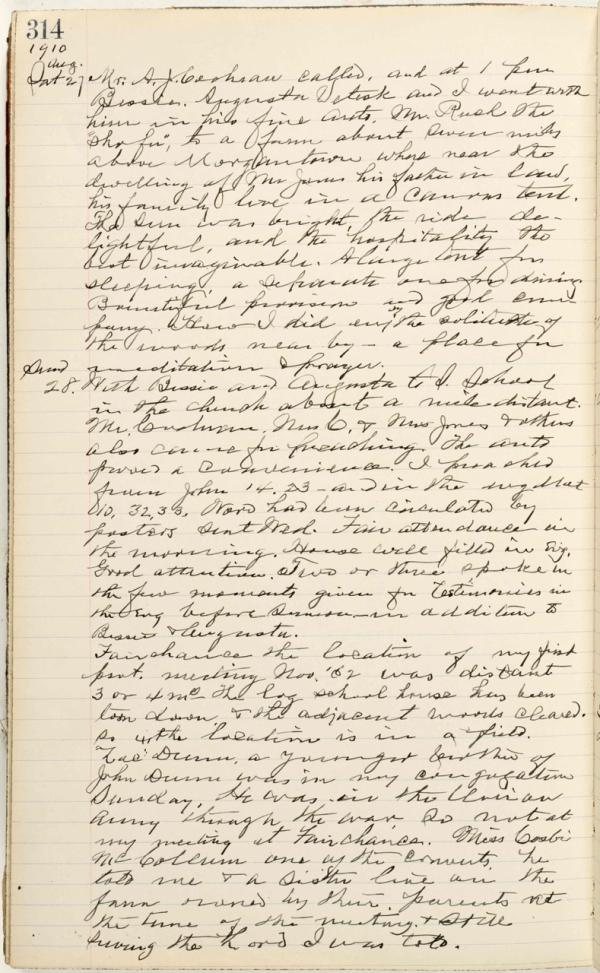 314
1910
Aug.
Sat 27 Mr. A. J. Cochran called, and at 1 pm
Bessie, Augusta and I went with
him in his fine auto, Mr. Rush the
"Shofu", to a farm about seven miles
above Morgantown where near the
dwelling of Mr Jones his father in law,
his family live in a canvas tent.
The sun was bright, the ride de-
lightful, and the hospitality the
best imaginable. A large tent for
sleeping, a separate one for dining
Bountiful provision and good com-
pany. How I did enjoy the solitude of
the woods near by - a place for
meditation & prayer.
Sund
28. With Bessie and Augusta to S. School
in the church about a mile distant.
Mr. Cochran, Mrs C. & Mrs Jones & others
also came for preaching. The auto
proved a convenience. I preached
from John 14.23 - and in the evg Mat
10, 32,33. Word had been circulated by
posters sent Wed. Fair attendance in
the morning. House well filled in Evg.
Good attention. Two or three spoke in
the few moments given for testimonies in
the Evg before sermon - in addition to
Bessie & Augusta.
Fairchance the location of my first
prot. meeting Nov. '62 was distant
3 or 4 ms. The log school house has been
torn down, & the adjacent woods cleared.
so the location is in a field.
"Zac" Dunn, a younger brother of
John Dunn was in my congregation
Sunday. He was in the Union
army through the war so not at
my meeting at Fairchance. Miss
McCollum one of the converts he
told me & a sister live on the
farm owned by their parents at
the time of the meeting, & still
serving the Lord I was told.